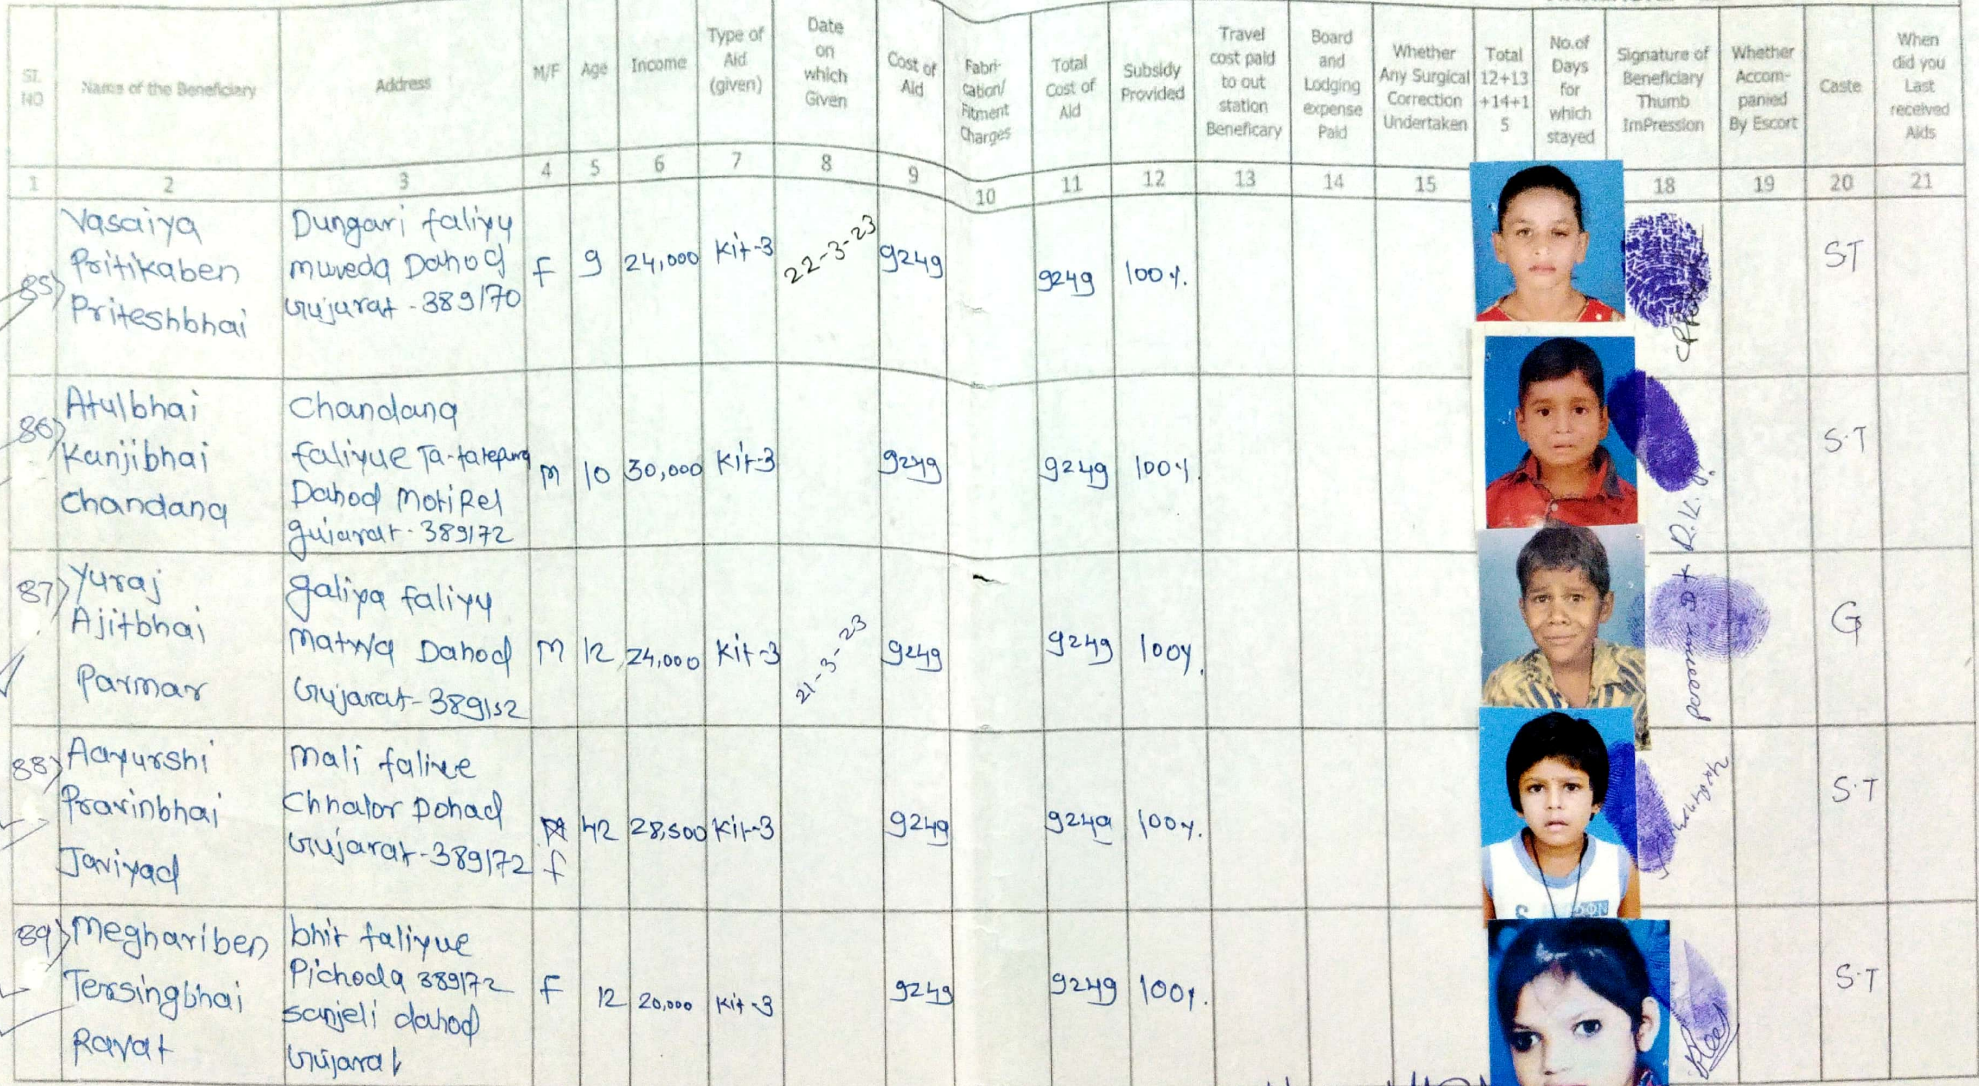 SL NO
Name of the Beneficiary
Address
M/F
Age
Income
Type of Aid (given)
Date on which Given
Cost of Aid
Fabri-cation/ Fitment Charges
Total Cost of Aid
Subsidy Provided
Travel cost paid to out station Beneficary
Board and Lodging expense Paid
Whether Any Surgical Correction Undertaken
Total 12+13 +14+1 5
No.of Days for which stayed
Signature of Beneficiary Thumb ImPression
Whether Accom-panied By Escort
Caste
When did you Last received Aids
1 2 3 4 5 6 7 8 9 10 11 12 13 14 15 18 19 20 21
85)
Vasaiya
Pritikaben
Priteshbhai
Dungari faliyu
muveda Dahod
Gujarat - 389170
F 9 24,000 Kit-3 22-3-23 9249 9249 100%. ST
86)
Atulbhai
Kanjibhai
Chandana
Chandana
faliyue Ta-
Dahod Motirel
gujarat - 389172
M 10 30,000 Kit-3 9249 9249 100%. S.T
R.K.
87)
Yuraj
Ajitbhai
Parmar
galiya faliyu
Matwa Dahod
Gujarat - 389152
M 12 24,000 Kit-3 21-3-23 9249 9249 100%. G
88)
Aayurshi
Pravinbhai
Javiyad
Mali faliye
Chhalor Dohad
Gujarat - 389172
f 28,500 Kit-3 9249 9249 100%. S.T
89)
Meghariben
Tersingbhai
Ravat
bhit faliyue
Pichoda 389172
sanjeli dahod
Gujarat
F 12 20,000 Kit-3 9249 9249 100%. S.T